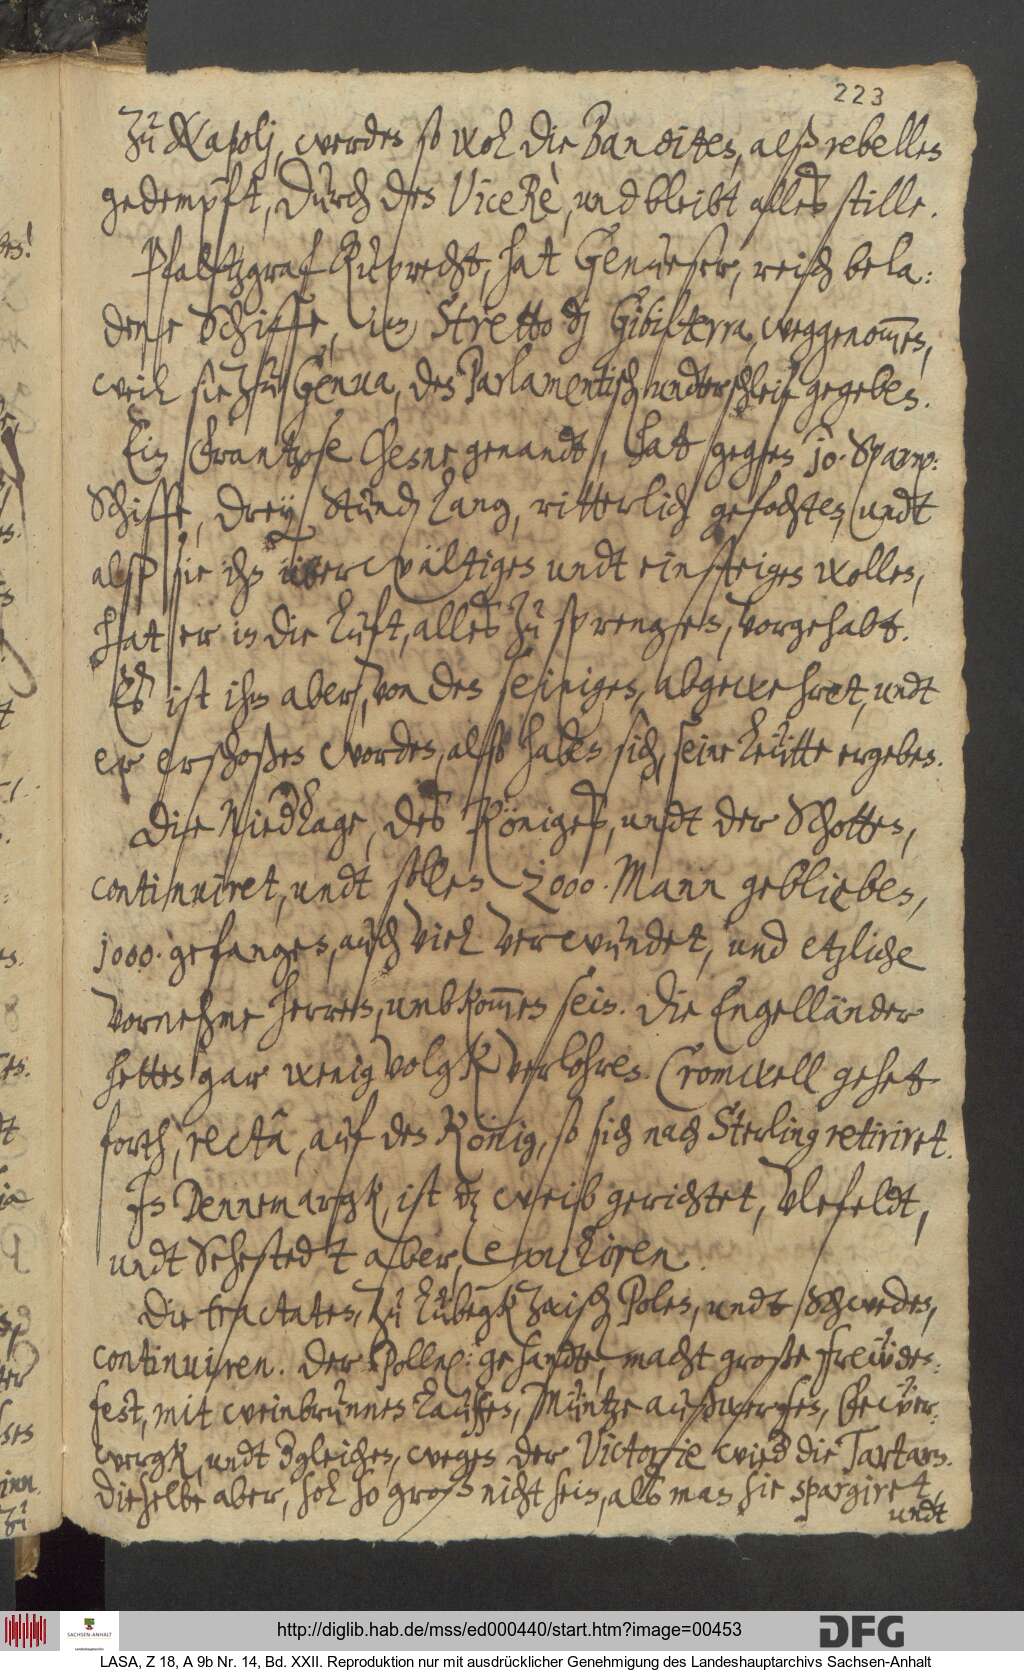 223
Zu Napolj, werden so wol die Banditen, alß rebellen
gedempft, durch den Vice Rè, und bleibt alles stille.
Pfaltzgraf Ruprecht, hat Genueser, reich bela:
dene Schiffe, im Stretto dj Gibilterra, weggenom̄en,
weil sie zu Genua, den Parlamentisch[en] underschleif gegeben.
Ein Frantzose Chesne genandt, hat gegen 10. Spann:
Schiffe, drey Stund lang, ritterlich gefochten, undt
alß sie ihn überwältigen undt einsteigen wollen,
hat er in die Luft, alles zu sprengen, vorgehabt.
Es ist ihm aber, von den seinigen, abgewehret, undt
er erschoßen worden, alß haben sich, seine Leütte ergeben.
Die Niedlage, des Königes, undt der Schotten,
continuiret, undt sollen 2000. Mann geblieben,
1000. gefangen, auch viel verwundet, und etzliche
vornehme herren, umbkom̄en sein. Die Engelländer
hetten gar wenig volgk verlohren. Cromwell gehet
forth, rectâ, auf den König, so sich nach Sterling retiriret.
In Dennemargk, ist dz weib gerichtet, Ulefeldt,
undt Sehestedt aber,
Die tractaten, zu Lübegk zwisch[en] Polen, undt Schweden,
continuiren. Der Polln: gesandte, macht große freüden:
fest, mit weinbrunnen lauffen, Müntze außwerfen, Fewer:
wergk, undt dgleichen, wegen der Victorie wied die Tartarn.
Dieselbe aber, sol so groß nicht sein, als man sie spargiret,
undt
http://diglib.hab.de/mss/ed000440/start.htm?image=00453
DFG
SACHSEN-ANHALT
LASA, Z 18, A 9b Nr. 14, Bd. XXII. Reproduktion nur mit ausdrücklicher Genehmigung des Landeshauptarchivs Sachsen-Anhalt